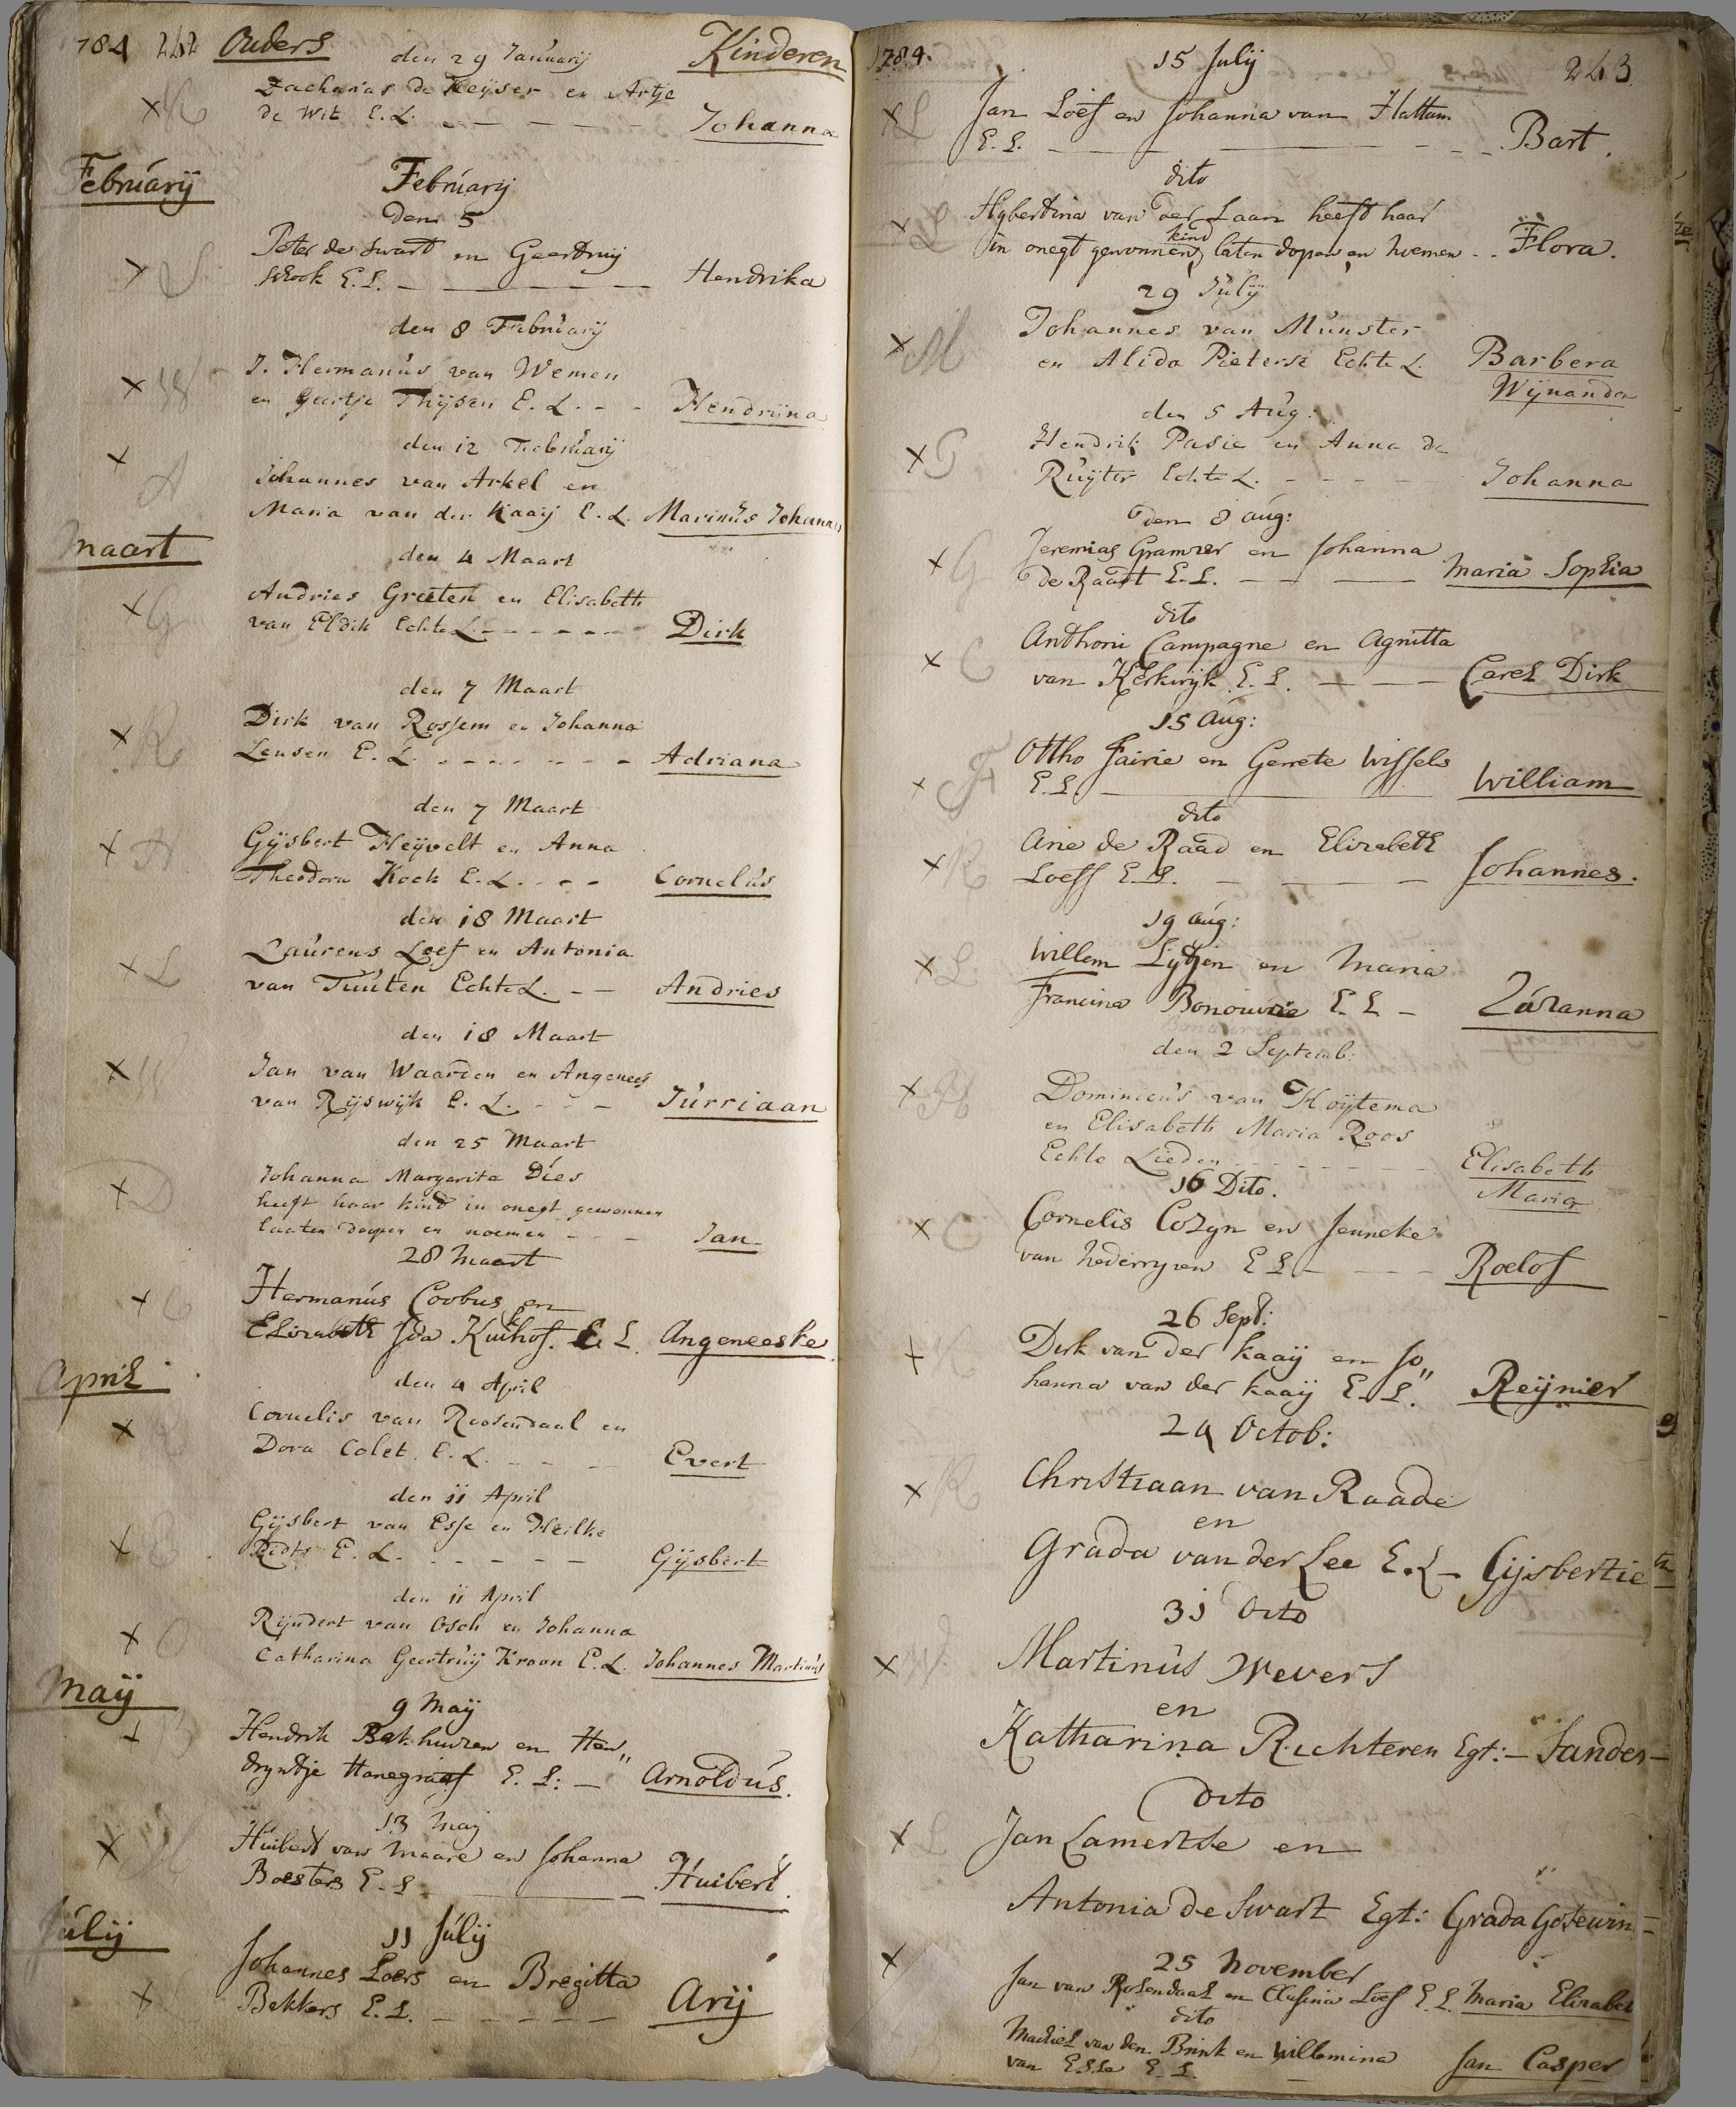 784 242 Ouders den 29 Januarij Kinderen
Zacharias de Keyser en Artje
de Wit E.L. - - - - - Johanna
Februarij
Februarij
den 5
Peter de Swart en Geertruij
Schook E.L. - - - - - Hendrika
den 8 Februarij
J. Hermanus van Wemen
en Geertje Thijsen E.L. - - Hendrijna
den 12 Februarij
Johannes van Arkel en
Maria van der Kaaij E.L. Marinus Johannes
Maart
den 4 Maart
Andries Greeten en Elisabeth
van Eldik Echte L. - - - - - Dirk
den 7 Maart
Dirk van Rossem en Johanna
Lensen E.L. - - - - - Adriana
den 7 Maart
Gijsbert Heijvelt en Anna
Theodora Kock E.L. - - - Cornelus
den 18 Maart
Laurens Loef en Antonia
van Tuuten Echte L. - - Andries
den 18 Maart
Jan van Waarden en Angenees
van Rijswijk E.L. - - - Jurriaan
den 25 Maart
Johanna Margarita Dies
heeft haar kind in onegt gewonnen
laaten doopen en noemen - - - Jan
28 Maart
Hermanus Coobus en
Elizabeth Ida Kuikhof. E.L. Angeneeske
April
den 4 April
Cornelis van Roosendaal en
Dora Colet. E.L. - - - Evert
den 11 April
Gijsbert van Esse en Heilke
E.L. - - - - - Gijsbert
den 11 April
Rijndert van Osch en Johanna
Catharina Geertruij Kroon E.L. Johannes Martinus
Maij
9 Maij
Hendrik Bakhuizen en Hen„
dryntje Hanegraaf E.L: - Arnoldus.
13 Maij
Huibert van Maare en Johanna
Boesters E.L. - Huibert.
Julij
11 Julij
Johannes Loers en Bregitta
Bekkers E.L. - - - - - Arij
1784. 15 Julij 243.
Jan Loef en Johanna van Hattum
E.L. - - - - - Bart.
dito
Hybertina van der Laan heeft haar
kind
in onegt gewonnen, laten dopen en noemen - - Flora.
29 Julij
Johannes van Munster
en Alida Pieterse Echte L. Barbera
Wijnanda
den 5 Aug:
Hendrik Pasie en Anna de
Ruijter Echte L. - - - - Johanna
den 8 aug:
Jeremias Gramzer en Johanna
de Raadt E.L. - - - Maria Sophia
dito
Anthoni Campagne en Agnitta
van Kerkwijk E.L. - - - Carel Dirk
15 Aug:
Ottho Fairie en Gerrete Wissels
E.L. - William
dito
Arie de Raad en Elizabeth
Loeff E.L. - - Johannes.
19 aug:
Willem Lytzen en Maria
Francina Bonouvrie E.L. - Zuzanna
den 2 Septemb:
Dominicus van Hoijtema
en Elisabeth Maria Roos
Echte Lieden - - - - - Elisabeth
Maria
16 Dito.
Cornelis Cozyn en Jenneke
van Nederryven E L - - - - Roelof
26 Sept:
Dirk van der Kaaij en Jo„
hanna van der Kaaij E.L. Reijnier
24 Octob:
Christiaan van Raade
en
Grada van der Lee E.L - Gijsbertie
31 Octo
Martinus Wevers
en
Katharina Richteren Egt: - Sander -
Dito
Jan Lamertse en
Antonia de Swart Egt: Grada Gosewin
25 November
Jan van Rosendaal en Clasina Loef E.L. Maria Elizabet
dito
Machiel van den Brink en Willemina
van Esse E.L. - Jan Casper